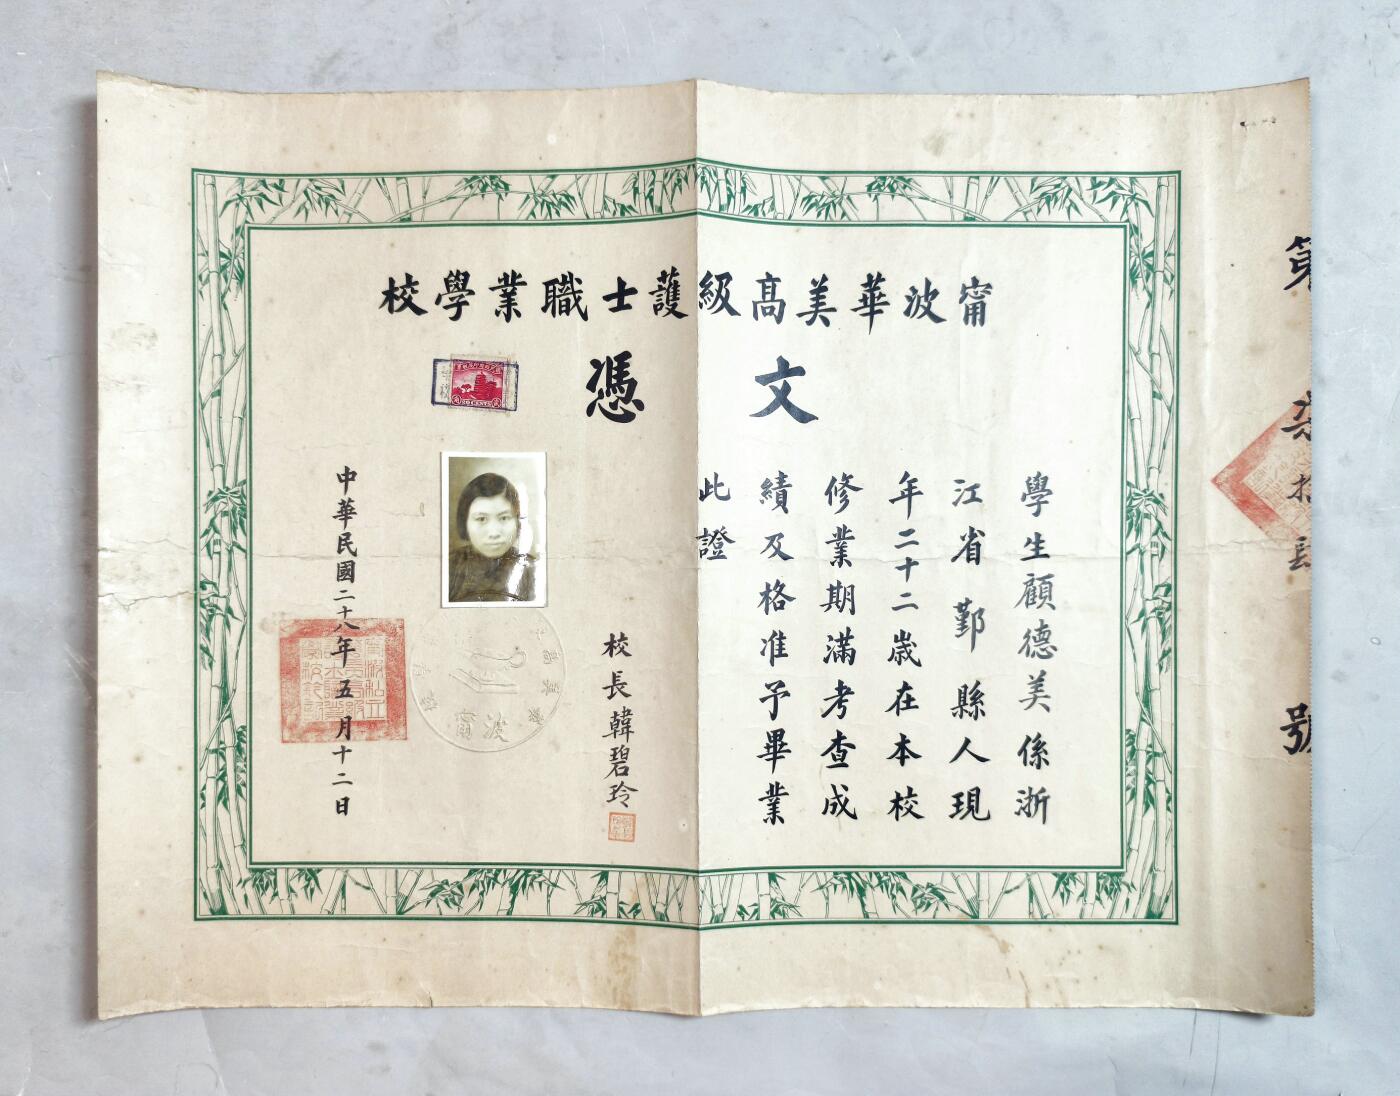 甯波華美高級護士職業學校
文憑
學生顧德美係浙
江省鄞縣人現
年二十二歲在本校
修業期滿考查成
績及格准予畢業
此證
校長韓碧玲
中華民國二十八年五月十二日
第 拾 號
20 CENTS
甯波